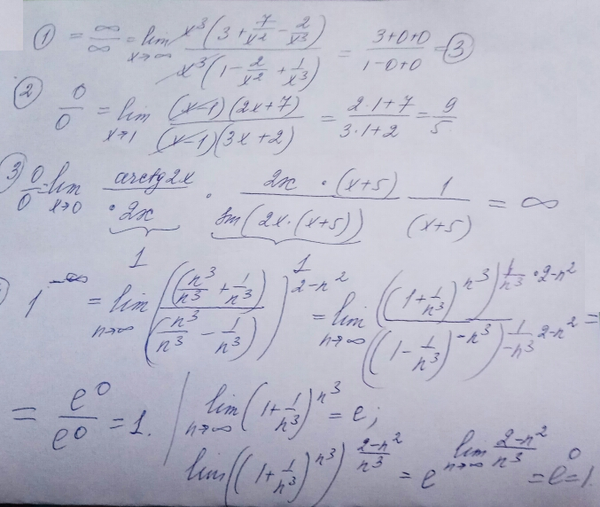 ① = ∞/∞ = lim x→∞ x³(3 + 7/x² - 2/x³) / x³(1 - 2/x² + 1/x³) = (3+0+0)/(1-0+0) = 3
② 0/0 = lim x→1 (x-1)(2x+7) / (x-1)(3x+2) = (2·1+7)/(3·1+2) = 9/5
③ 0/0 = lim x→0 arctg2x / ·2x · 2x·(x+5) / sin(2x·(x+5)) 1/(x+5) = ∞
1 1
1^-∞ = lim n→∞ ((n³/n³ + 1/n³) / (n³/n³ - 1/n³))^2-n² = lim n→∞ ((1+1/n³)^n³)^1/n³·2-n² / ((1-1/n³)^-n³)^1/-n³·2-n² =
= e⁰/e⁰ = 1. | lim n→∞ (1+1/n³)^n³ = e;
lim((1+1/n³)^n³)^(2-n²)/n³ = e^lim n→∞ (2-n²)/n³ = e⁰ = 1.